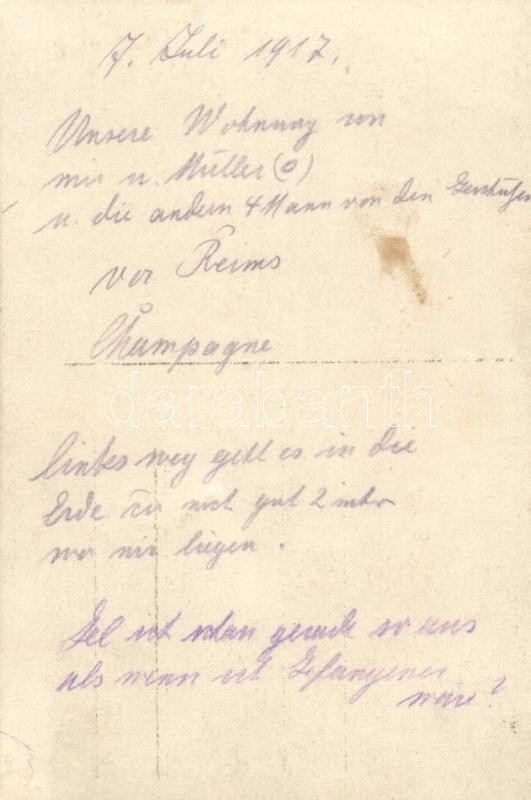 7. Juli 1917.
Unsere Wohnung von
mir u. Müller (o)
u. die andern 4 Mann von den
vor Reims
Champagne
darabanth
linkes weg geht es in die
Erde zu mit gut 2 mtr
wo wir liegen.
ich schau gerade so aus
als wenn ich Gefangener
wäre?